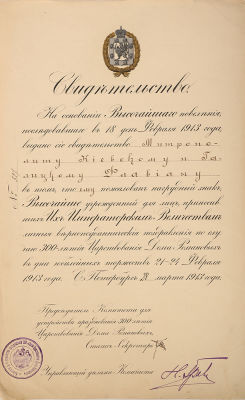 Свидѣтельство.
На основаніи Высочайшаго повелѣнія,
послѣдовавшаго въ 18 день Февраля 1913 года,
выдано сіе свидѣтельство Митропо-
литу Кіевскому и Га-
лицкому Флавіану
въ томъ, что ему пожалованъ нагрудный знакъ,
Высочайше учрежденный для лицъ, принесав-
шихъ Ихъ Императорскимъ Величествамъ
личныя вѣрноподданническія поздравленія по слу-
чаю 300-лѣтія Царствованія Дома Романовыхъ
въ дни юбилейныхъ торжествъ 21-24 Февраля
1913 года. С. Петербургъ, марта 1913 года.
Предсѣдатель Комитета для
устройства празднованія 300-лѣтія
Царствованія Дома Романовыхъ,
Статсъ-Секретарь
Управляющій дѣлами Комитета